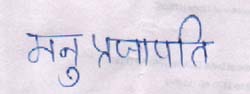 मनु प्रजापति